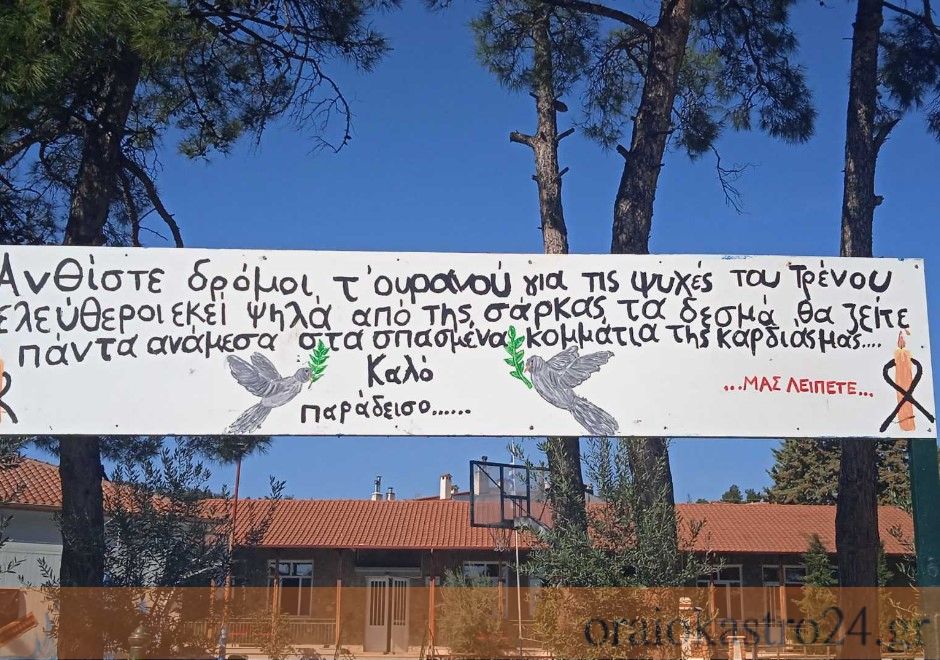 Ανθίστε δρόμοι τ'ουρανού για τις ψυχές του Τρένου
ελεύθεροι εκεί ψηλά από της σάρκας τα δεσμά θα ζείτε
πάντα ανάμεσα στα σπασμένα κομμάτια της καρδιάς μας....
Καλό
παράδεισο......
...ΜΑΣ ΛΕΙΠΕΤΕ...
oraiokastro24.gr